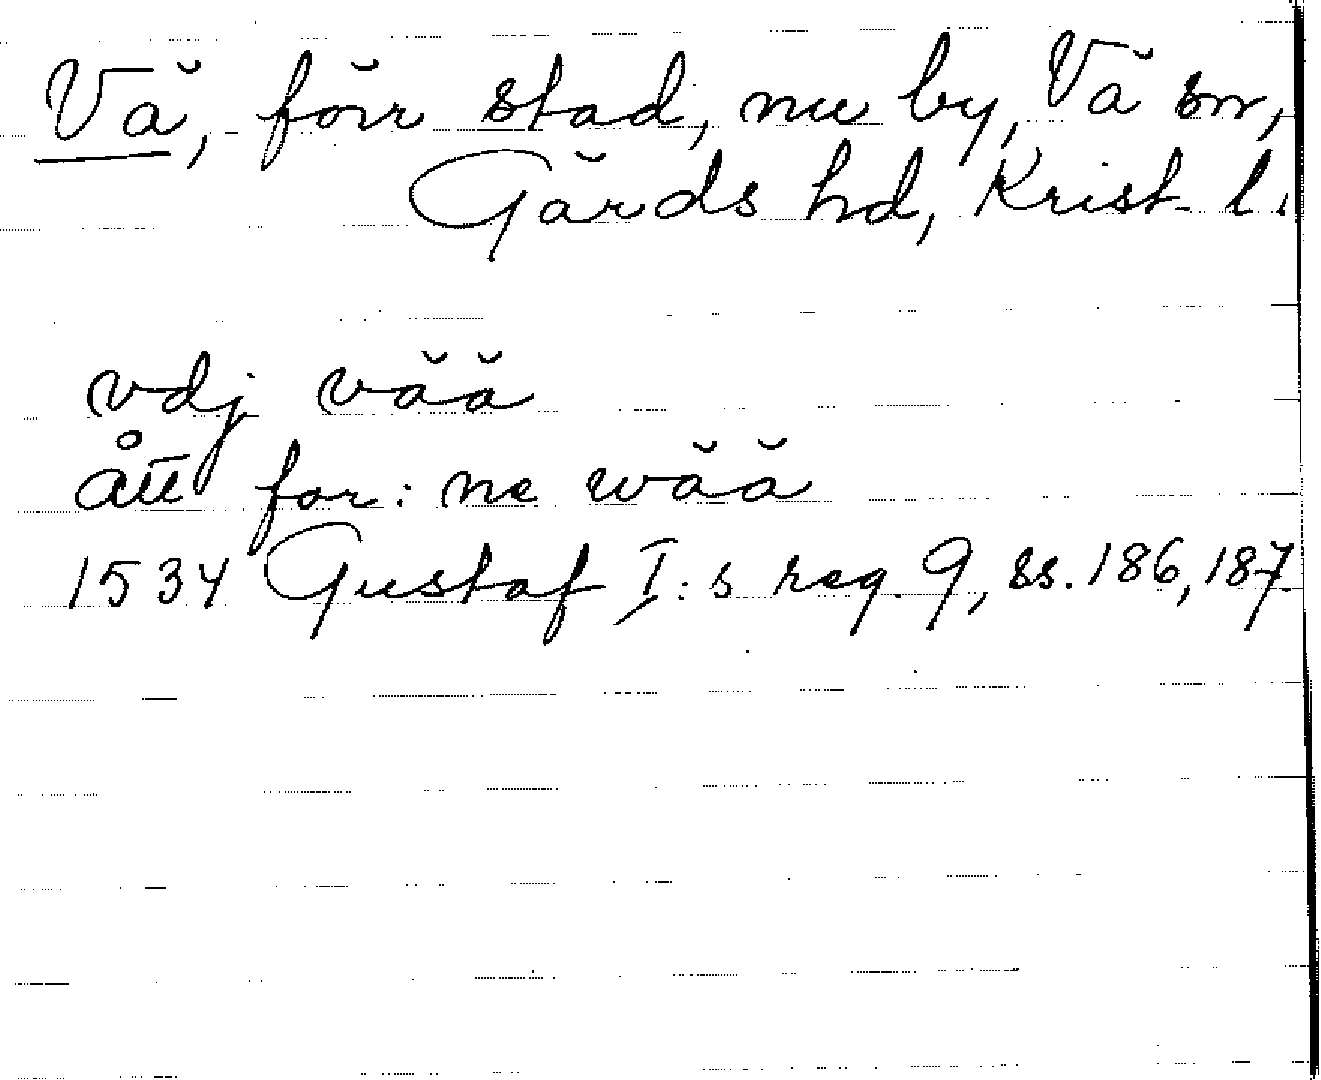 Vä, förr stad, nu by, Vä sn,
Gärds hd, Krist. l.
vdj vää
ått for: ne wää
1534 Gustaf I:s reg. 9, ss. 186, 187.